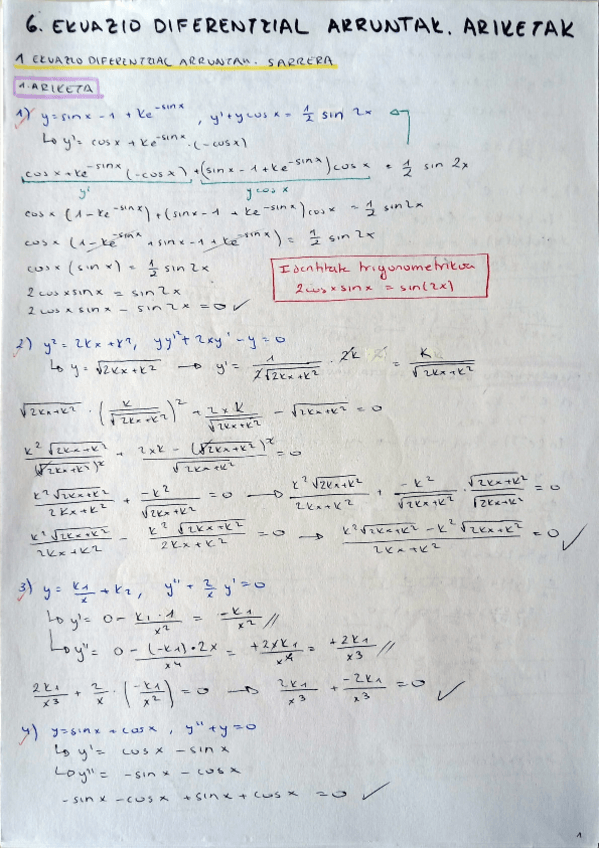 6. EKUAZIO DIFERENTZIAL ARRUNTAK. ARIKETAK
1 EKUAZIO DIFERENTZIAL ARRUNTAK. SARRERA
1. ARIKETA
1) y = sin x - 1 + Ke^{-sin x} , y' + y cos x = 1/2 sin 2x
↳ y' = cos x + Ke^{-sin x} · (-cos x)
cos x + Ke^{-sin x} (-cos x) + (sin x - 1 + Ke^{-sin x}) cos x = 1/2 sin 2x
y' y cos x
cos x (1 - Ke^{-sin x}) + (sin x - 1 + Ke^{-sin x}) cos x = 1/2 sin 2x
cos x (1 - Ke^{-sin x} + sin x - 1 + Ke^{-sin x}) = 1/2 sin 2x
cos x (sin x) = 1/2 sin 2x
2 cos x sin x = sin 2x
2 cos x sin x - sin 2x = 0 ✓
Identitate trigonometrikoa
2 cos x sin x = sin(2x)
2) y² = 2Kx + K², yy'² + 2xy' - y = 0
↳ y = √(2Kx + K²) → y' = 1/(2√(2Kx + K²)) · 2K = K/√(2Kx + K²)
√(2Kx + K²) · (K/√(2Kx + K²))² + 2xK/√(2Kx + K²) - √(2Kx + K²) = 0
K²√(2Kx + K²)/(√(2Kx + K²))² + (2xK - (√(2Kx + K²))²)/√(2Kx + K²) = 0
K²√(2Kx + K²)/(2Kx + K²) + -K²/√(2Kx + K²) = 0 → K²√(2Kx + K²)/(2Kx + K²) + -K²/√(2Kx + K²) · √(2Kx + K²)/√(2Kx + K²) = 0
K²√(2Kx + K²)/(2Kx + K²) - K²√(2Kx + K²)/(2Kx + K²) = 0 → (K²√(2Kx + K²) - K²√(2Kx + K²))/(2Kx + K²) = 0 ✓
3) y = K1/x + K2, y'' + 2/x y' = 0
↳ y' = 0 - K1·1/x² = -K1/x² //
↳ y'' = 0 - (-K1)·2x/x4 = +2xK1/x4 = +2K1/x3 //
2K1/x3 + 2/x · (-K1/x²) = 0 → 2K1/x3 + -2K1/x3 = 0 ✓
4) y = sin x + cos x , y'' + y = 0
↳ y' = cos x - sin x
↳ y'' = -sin x - cos x
-sin x - cos x + sin x + cos x = 0 ✓
1